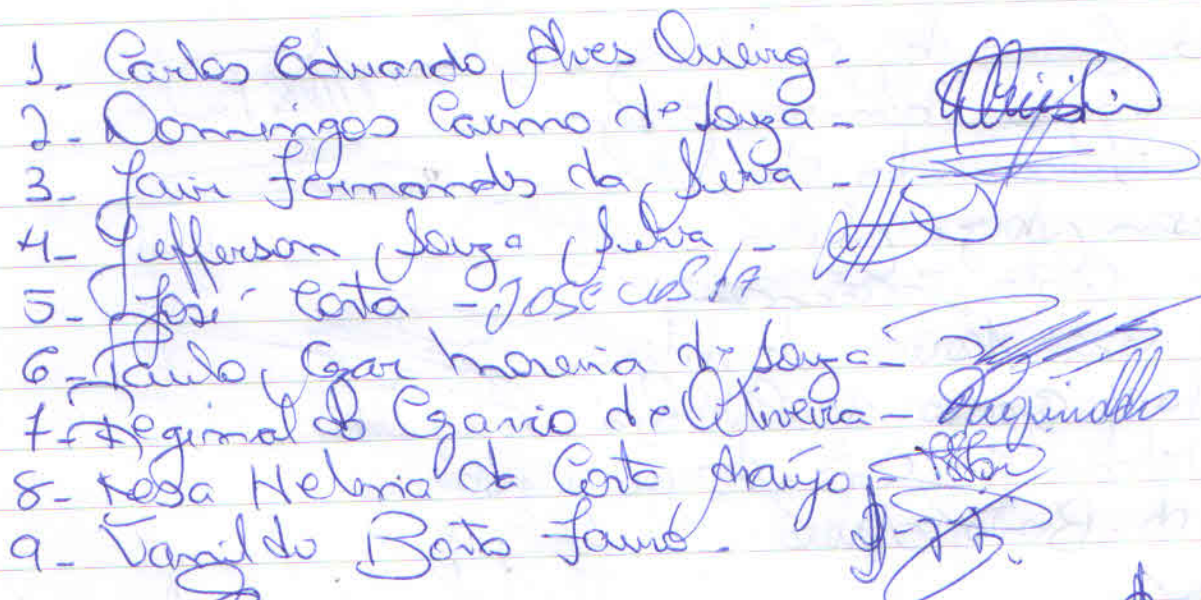 1_ Carlos Eduardo Alves Queiroz -
2 - Domingos Carmo de Souza -
3 - Jair Fernandes da Silva -
4 - Jefferson Souza Silva -
5 - José Costa - JOSÉ COSTA
6 - Paulo Cezar Moreira de Souza -
7 - Reginaldo de Oliveira - Reginaldo
8 - Rosa Helena da Costa Araújo -
9 - Vanildo